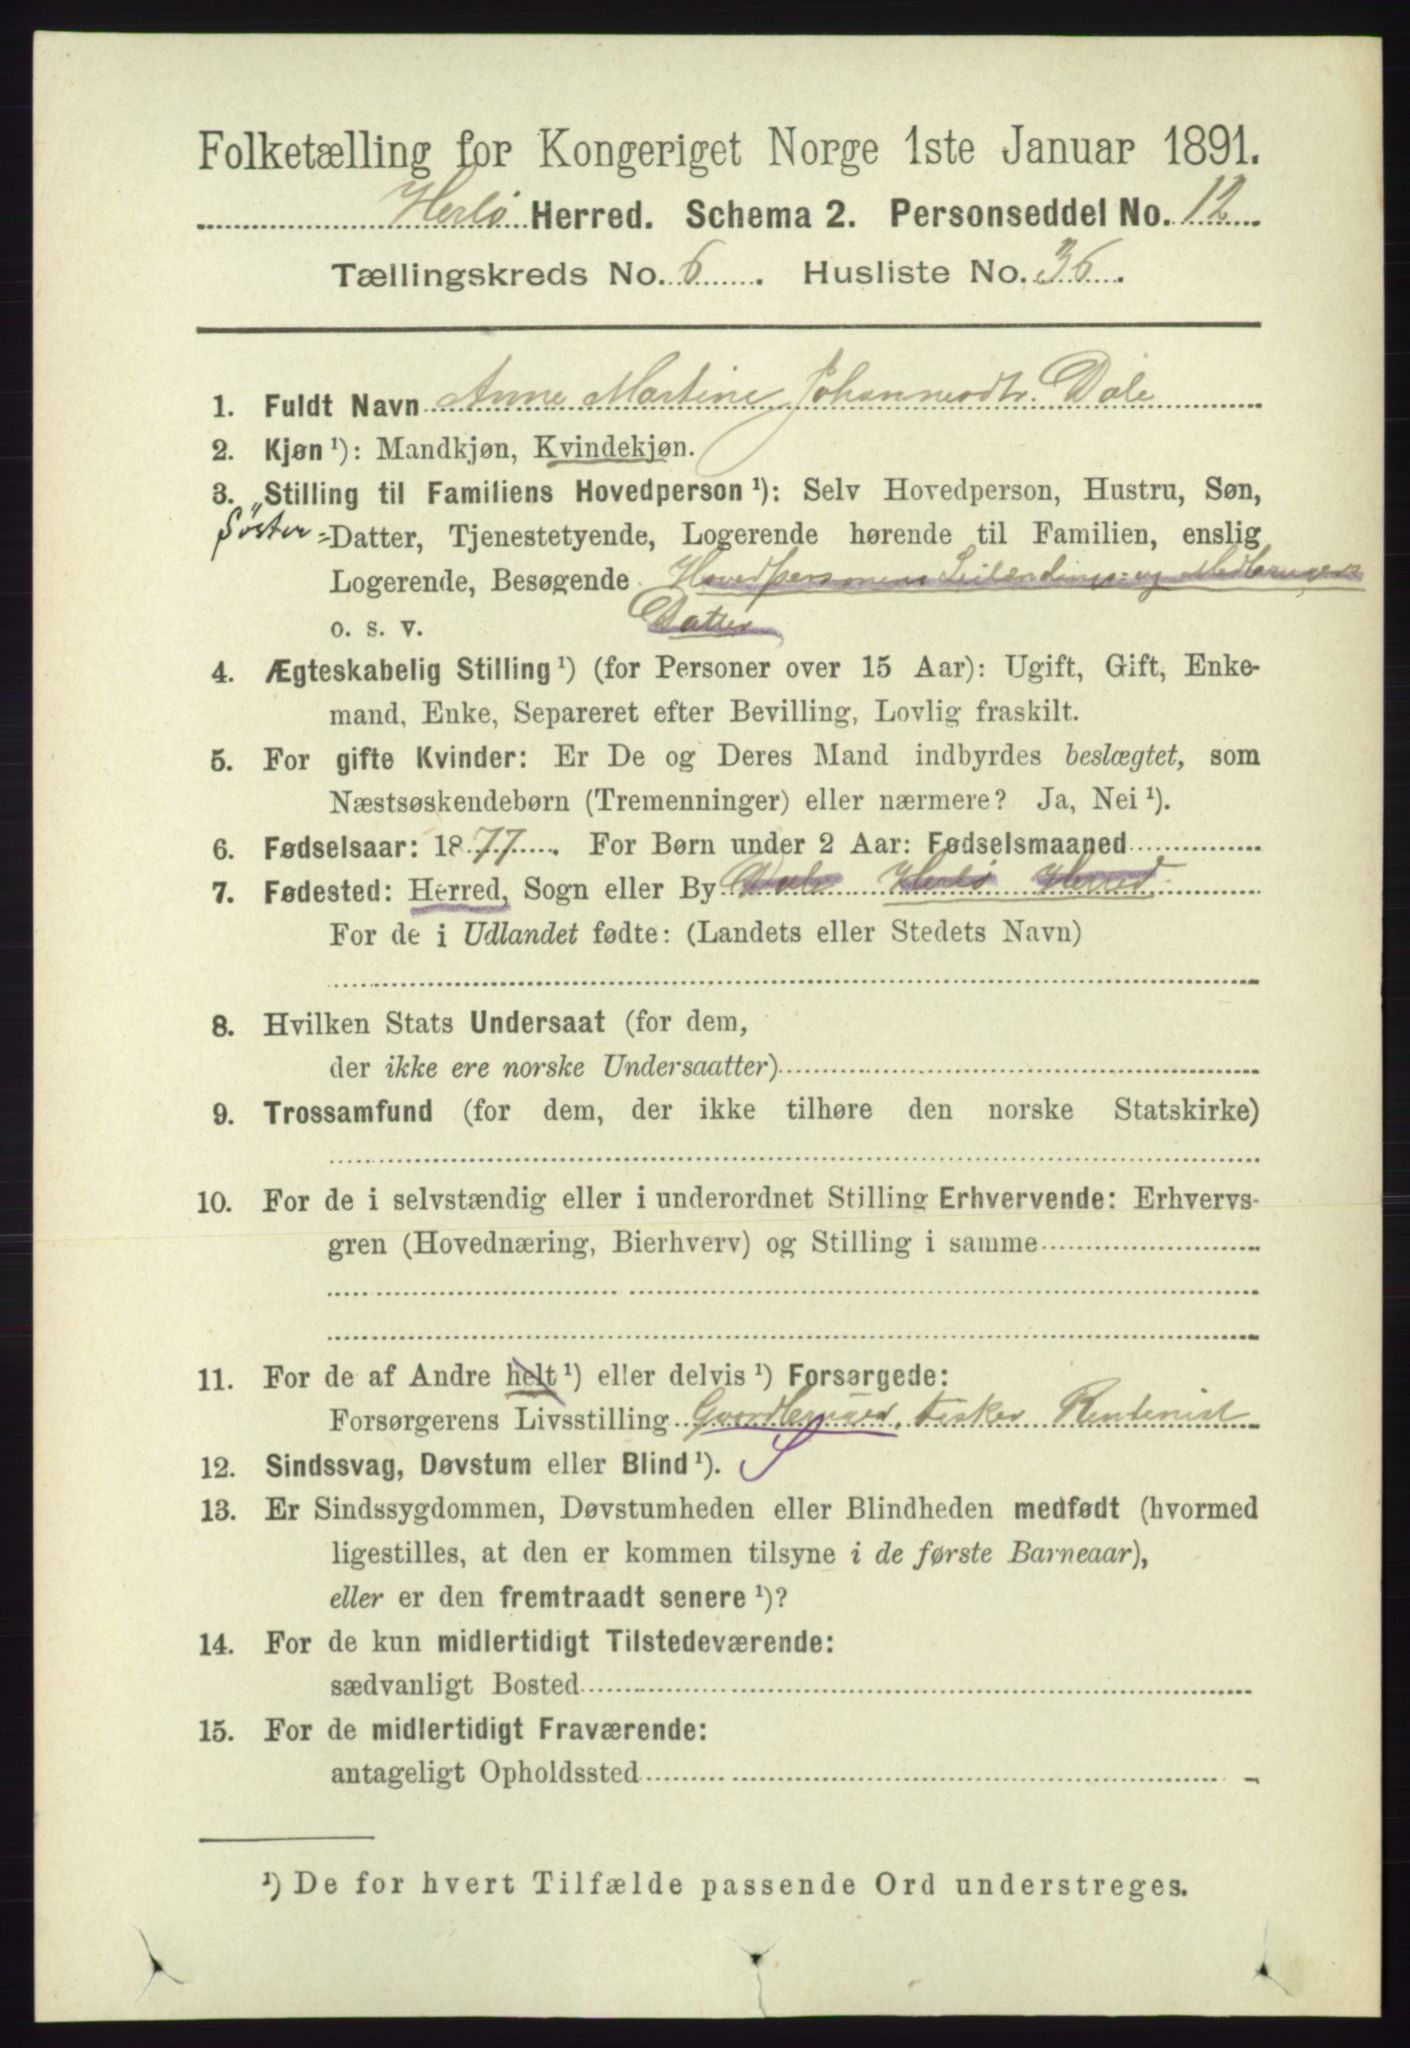 Folketælling for Kongeriget Norge 1ste Januar 1891.
Herlø Herred. Schema 2. Personseddel No. 12
Tællingskreds No. 6. Husliste No. 36.
1. Fuldt Navn Anne Martine Johannesdtr. Dale
2. Kjøn ¹): Mandkjøn, Kvindekjøn.
3. Stilling til Familiens Hovedperson ¹): Selv Hovedperson, Hustru, Søn,
Søster - Datter, Tjenestetyende, Logerende hørende til Familien, enslig
Logerende, Besøgende Hovedpersonens Leilændings- og Medbrugers
o. s. v. Datter
4. Ægteskabelig Stilling ¹) (for Personer over 15 Aar): Ugift, Gift, Enke-
mand, Enke, Separeret efter Bevilling, Lovlig fraskilt.
5. For gifte Kvinder: Er De og Deres Mand indbyrdes beslægtet, som
Næstsøskendebørn (Tremenninger) eller nærmere? Ja, Nei ¹).
6. Fødselsaar: 1877. For Børn under 2 Aar: Fødselsmaaned
7. Fødested: Herred, Sogn eller By Dale Herlø Herred
For de i Udlandet fødte: (Landets eller Stedets Navn)
8. Hvilken Stats Undersaat (for dem,
der ikke ere norske Undersaatter)
9. Trossamfund (for dem, der ikke tilhøre den norske Statskirke)
10. For de i selvstændig eller i underordnet Stilling Erhvervende: Erhvervs-
gren (Hovednæring, Bierhverv) og Stilling i samme
11. For de af Andre helt ¹) eller delvis ¹) Forsørgede:
Forsørgerens Livsstilling Gaardbruger, Fisker Rentenist
12. Sindssvag, Døvstum eller Blind ¹).
13. Er Sindssygdommen, Døvstumheden eller Blindheden medfødt (hvormed
ligestilles, at den er kommen tilsyne i de første Barneaar),
eller er den fremtraadt senere ¹)?
14. For de kun midlertidigt Tilstedeværende:
sædvanligt Bosted
15. For de midlertidigt Fraværende:
antageligt Opholdssted
¹) De for hvert Tilfælde passende Ord understreges.